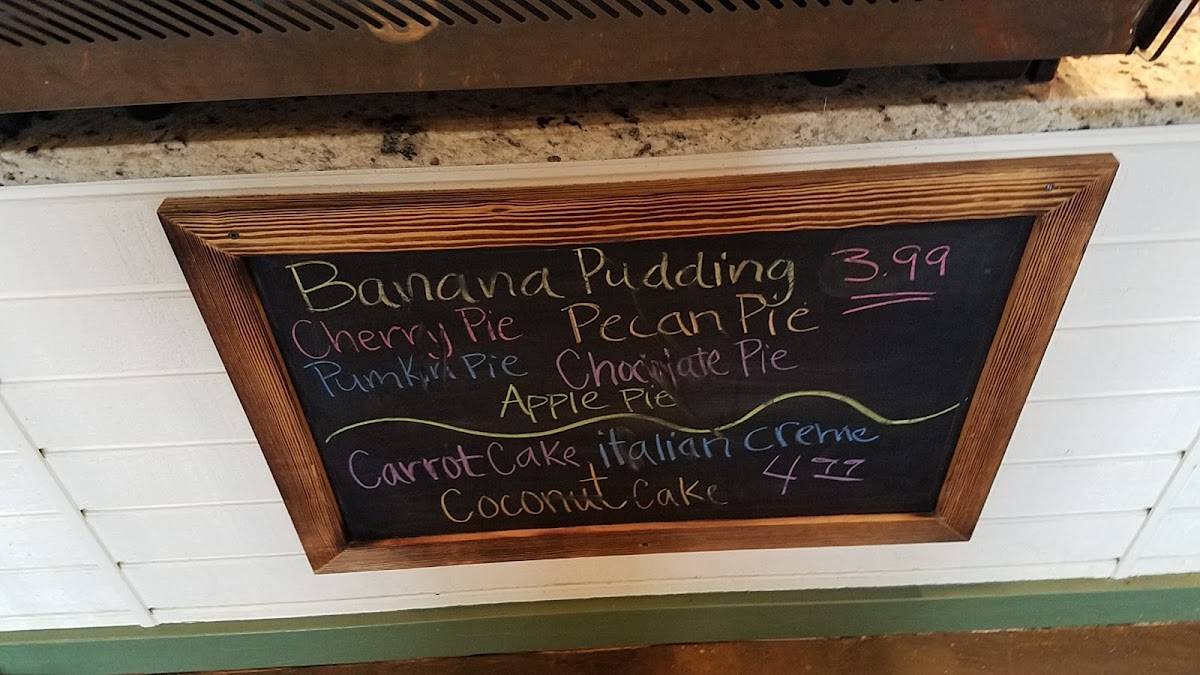 Banana Pudding 3.99
Cherry Pie Pecan Pie
Pumkin Pie Chocolate Pie
Apple Pie
Carrot Cake italian creme
Coconut Cake 4